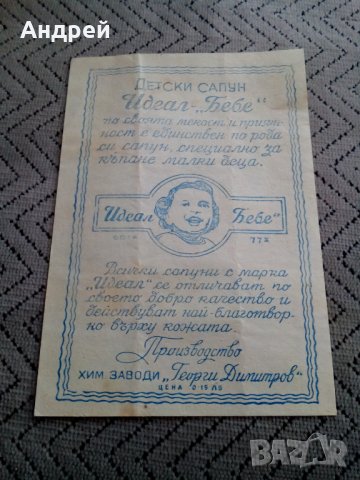 Андрей
ДЕТСКИ САПУН
Идеал-„Бебе“
по своята мекост и прият-
ност е единствен по рода
си, сапун, специално за
къпане малки деца.
Идеал Бебе"
77%
Всички сапуни с марка
„Идеал“ се отличават по
своето добро качество и
действуват най-благотвор-
но върху кожата.
Производство
ХИМ ЗАВОДИ „Георги Димитров“
ЦЕНА 0·15 ЛВ
BAZAR